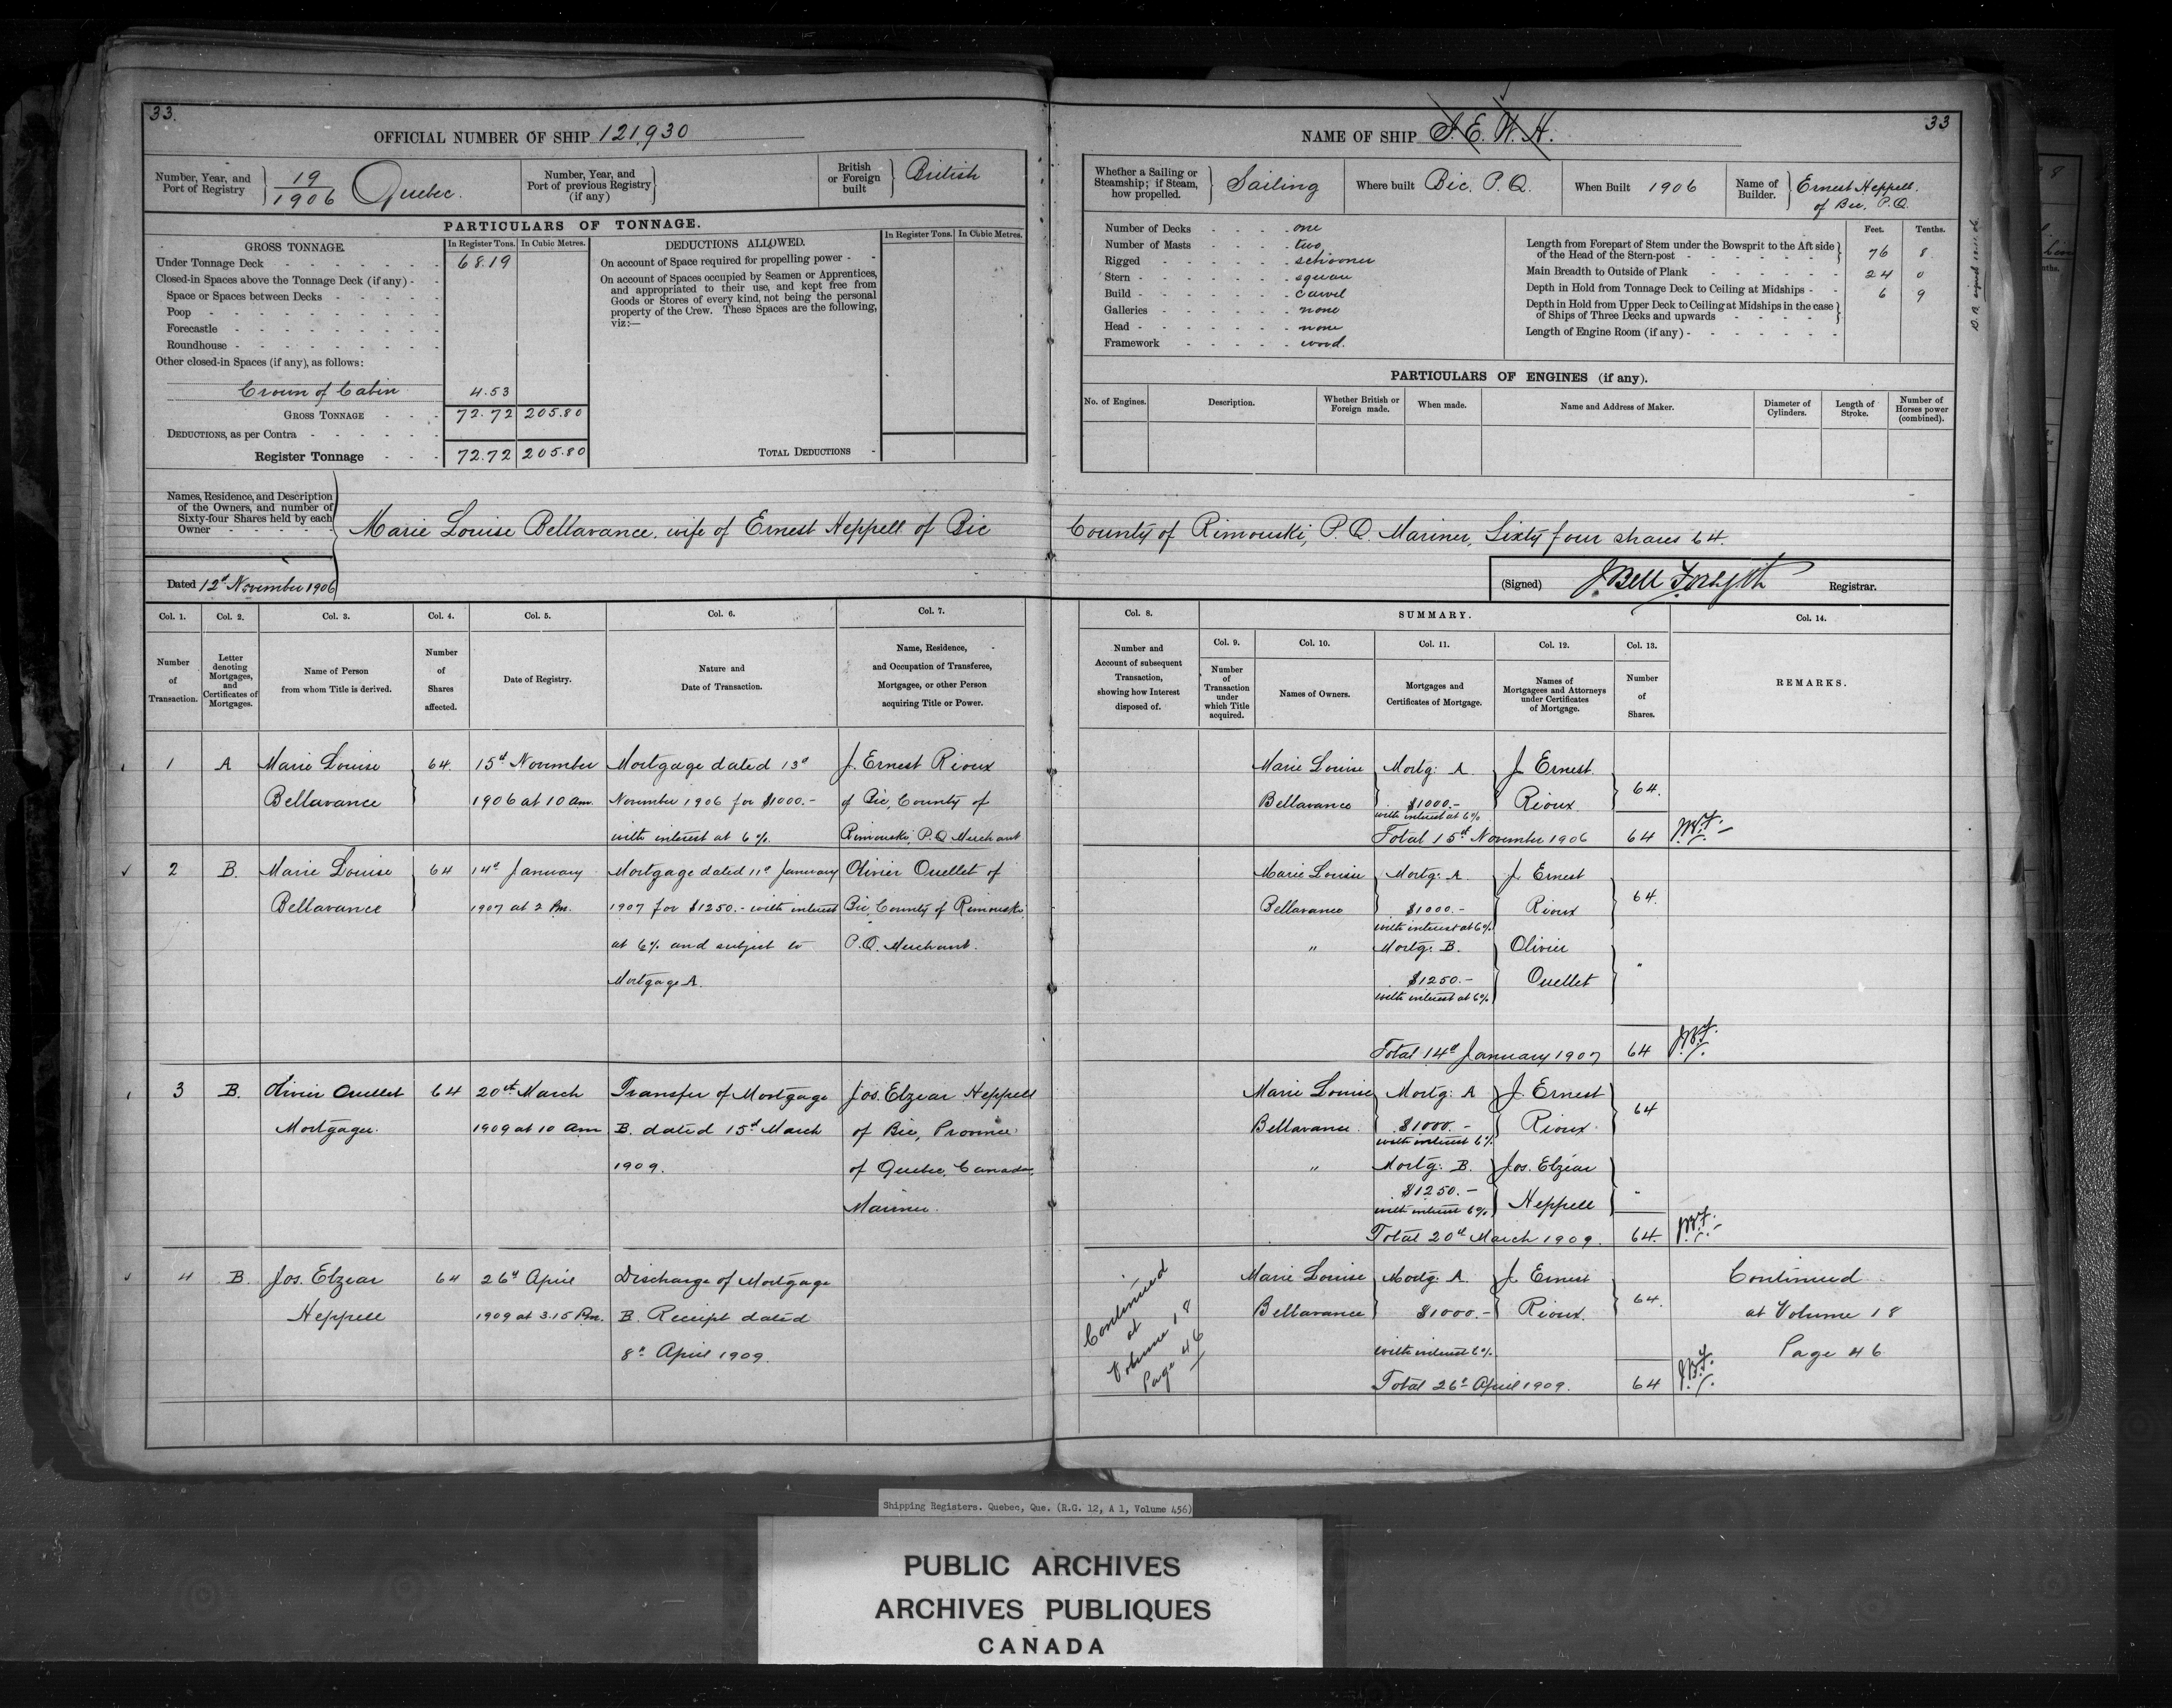 33.
OFFICIAL NUMBER OF SHIP 121,930
Number, Year, and Port of Registry 19/1906 Quebec.
Number, Year, and Port of previous Registry (if any)
British or Foreign built British
PARTICULARS OF TONNAGE.
GROSS TONNAGE. In Register Tons. In Cubic Metres.
Under Tonnage Deck 68.19
Closed-in Spaces above the Tonnage Deck (if any)
Space or Spaces between Decks
Poop
Forecastle
Roundhouse
Other closed-in Spaces (if any), as follows:
Crown of Cabin 4.53
GROSS TONNAGE 72.72 205.80
DEDUCTIONS, as per Contra
Register Tonnage 72.72 205.80
DEDUCTIONS ALLOWED. In Register Tons. In Cubic Metres.
On account of Space required for propelling power
On account of Spaces occupied by Seamen or Apprentices,
and appropriated to their use, and kept free from
Goods or Stores of every kind, not being the personal
property of the Crew. These Spaces are the following,
viz:—
TOTAL DEDUCTIONS
33
NAME OF SHIP J. E. W. H.
Whether a Sailing or Steamship; if Steam, how propelled. Sailing
Where built Bic. P.Q.
When Built 1906
Name of Builder. Ernest Heppell.
of Bic. P.Q.
Number of Decks one
Number of Masts two
Rigged schooner
Stern square
Build carvel
Galleries none
Head none
Framework wood.
Feet. Tenths.
Length from Forepart of Stem under the Bowsprit to the Aft side of the Head of the Stern-post 76 8
Main Breadth to Outside of Plank 24 0
Depth in Hold from Tonnage Deck to Ceiling at Midships 6 9
Depth in Hold from Upper Deck to Ceiling at Midships in the case of Ships of Three Decks and upwards
Length of Engine Room (if any)
PARTICULARS OF ENGINES (if any).
No. of Engines. Description. Whether British or Foreign made. When made. Name and Address of Maker. Diameter of Cylinders. Length of Stroke. Number of Horses power (combined).
Names, Residence, and Description of the Owners, and number of Sixty-four Shares held by each Owner
Marie Louise Bellavance, wife of Ernest Heppell of Bic County of Rimouski, P.Q. Mariner, Sixty four shares 64.
Dated 12d November 1906
(Signed) J. Bell Forsyth Registrar.
Col. 1. Col. 2. Col. 3. Col. 4. Col. 5. Col. 6. Col. 7.
Number of Transaction.
Letter denoting Mortgages, and Certificates of Mortgages.
Name of Person from whom Title is derived.
Number of Shares affected.
Date of Registry.
Nature and Date of Transaction.
Name, Residence, and Occupation of Transferee, Mortgagee, or other Person acquiring Title or Power.
1 A Marie Louise 64. 15d November Mortgage dated 13d J. Ernest Rioux
Bellavance 1906 at 10 am. November 1906 for $1000.- of Bic, County of
with interest at 6%. Rimouski, P.Q. Merchant
2 B. Marie Louise 64 14d January Mortgage dated 11d January Olivier Ouellet of
Bellavance 1907 at 2 Pm. 1907 for $1250.- with interest Bic, County of Rimouski,
at 6% and subject to P.Q. Merchant.
Mortgage A.
3 B. Olivier Ouellet 64 20th March Transfer of Mortgage Jos. Elzear Heppell
Mortgagee. 1909 at 10 am B. dated 15d March of Bic, Province
1909. of Quebec, Canada,
Mariner.
4 B. Jos. Elzear 64 26d April Discharge of Mortgage
Heppell 1909 at 3.15 Pm. B. Receipt dated
8d April 1909.
Col. 8. SUMMARY. Col. 14.
Number and Account of subsequent Transaction, showing how Interest disposed of.
Col. 9. Col. 10. Col. 11. Col. 12. Col. 13.
Number of Transaction under which Title acquired.
Names of Owners.
Mortgages and Certificates of Mortgage.
Names of Mortgagees and Attorneys under Certificates of Mortgage.
Number of Shares.
REMARKS.
Marie Louise Mortg: A. J. Ernest
Bellavance $1000.- Rioux 64.
with interest at 6%
Total 15d November 1906 64 J.B.F.
Marie Louise Mortg: A. J. Ernest
Bellavance $1000.- Rioux 64.
with interest at 6%
" Mortg: B. Olivier
$1250.- Ouellet "
with interest at 6%
Total 14d January 1907 64 J.B.F.
Marie Louise Mortg: A J. Ernest
Bellavance. $1000.- Rioux. 64
with interest 6%
" Mortg: B. Jos. Elzear
$1250.- Heppell "
with interest 6%
Total 20d March 1909. 64. J.B.F.
Continued at Volume 18 Page 46
Marie Louise Mortg: A. J. Ernest Continued
Bellavance $1000.- Rioux. 64. at Volume 18
with interest 6%. Page 46
Total 26d April 1909. 64 J.B.F.
Shipping Registers. Quebec, Que. (R.G. 12, A 1, Volume 456)
PUBLIC ARCHIVES
ARCHIVES PUBLIQUES
CANADA